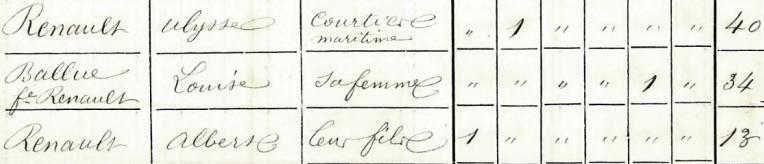 Renault Ulysse Courtier maritime " 1 " " " " 40
Ballue fe Renault Louise Sa femme " " " " 1 " 34
Renault Albert leur fils 1 " " " " " 13